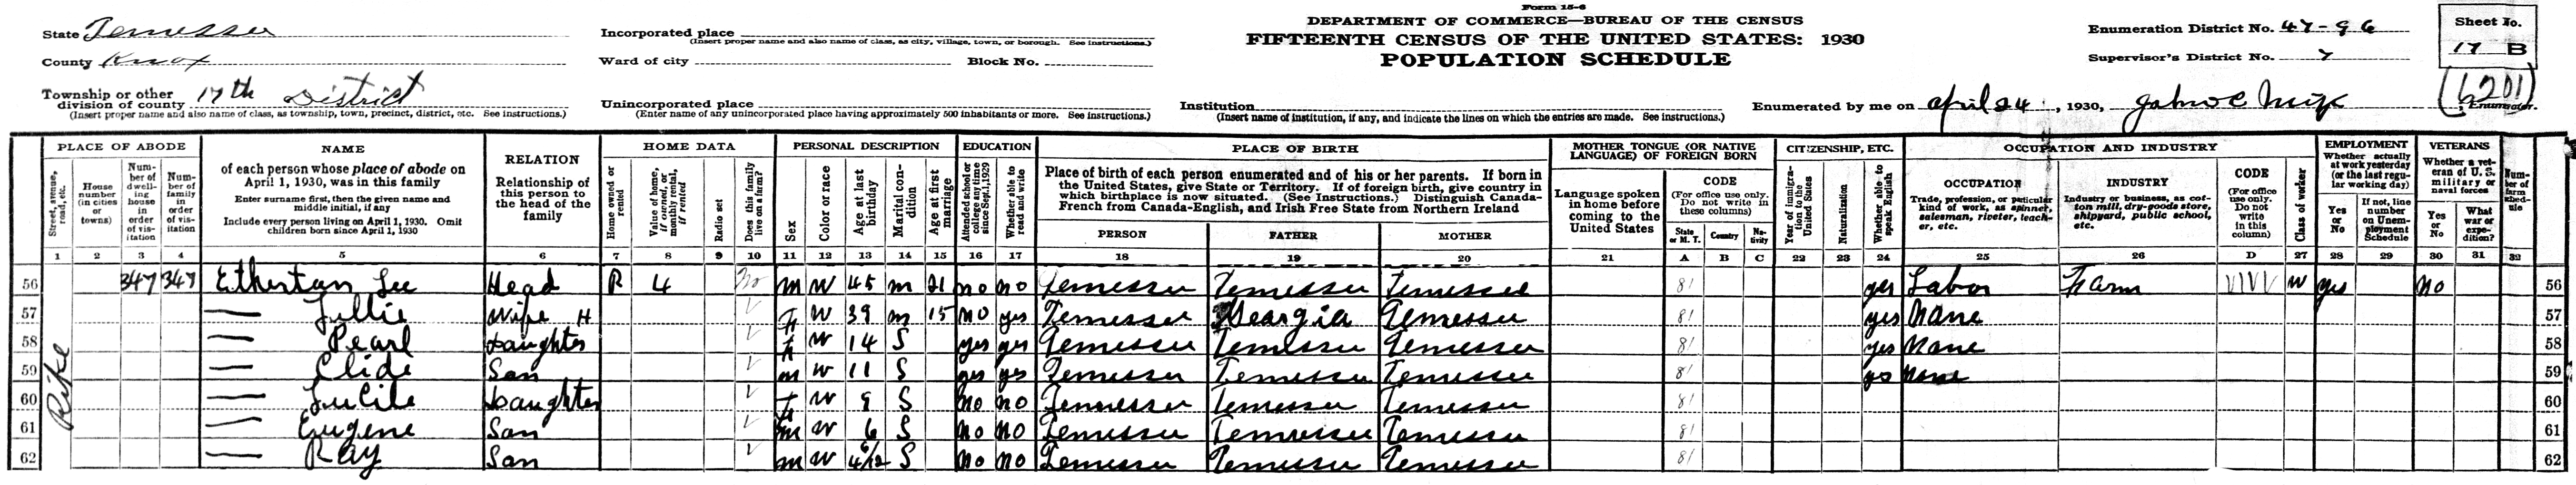 Form 15-6
DEPARTMENT OF COMMERCE—BUREAU OF THE CENSUS
FIFTEENTH CENSUS OF THE UNITED STATES: 1930
POPULATION SCHEDULE
State Tennessee
County Knox
Township or other division of county 17th District
(Insert proper name and also name of class, as township, town, precinct, district, etc. See instructions.)
Incorporated place
(Insert proper name and also name of class, as city, village, town, or borough. See instructions.)
Ward of city Block No.
Unincorporated place
(Enter name of any unincorporated place having approximately 500 inhabitants or more. See instructions.)
Institution
(Insert name of institution, if any, and indicate the lines on which the entries are made. See instructions.)
Enumeration District No. 47-96
Supervisor's District No. 7
Sheet No.
17 B
(6201)
Enumerated by me on April 24, 1930, Enumerator.
PLACE OF ABODE
Street, avenue, road, etc.
House number (in cities or towns)
Number of dwelling house in order of visitation
Number of family in order of visitation
NAME
of each person whose place of abode on April 1, 1930, was in this family
Enter surname first, then the given name and middle initial, if any
Include every person living on April 1, 1930. Omit children born since April 1, 1930
RELATION
Relationship of this person to the head of the family
HOME DATA
Home owned or rented
Value of home, if owned, or monthly rental, if rented
Radio set
Does this family live on a farm?
PERSONAL DESCRIPTION
Sex
Color or race
Age at last birthday
Marital condition
Age at first marriage
EDUCATION
Attended school or college any time since Sept. 1, 1929
Whether able to read and write
PLACE OF BIRTH
Place of birth of each person enumerated and of his or her parents. If born in the United States, give State or Territory. If of foreign birth, give country in which birthplace is now situated. (See Instructions.) Distinguish Canada-French from Canada-English, and Irish Free State from Northern Ireland
PERSON FATHER MOTHER
MOTHER TONGUE (OR NATIVE LANGUAGE) OF FOREIGN BORN
Language spoken in home before coming to the United States
CODE
(For office use only. Do not write in these columns)
State or M. T. Country Nativity
CITIZENSHIP, ETC.
Year of immigration to the United States
Naturalization
Whether able to speak English
OCCUPATION AND INDUSTRY
OCCUPATION
Trade, profession, or particular kind of work, as spinner, salesman, riveter, teacher, etc.
INDUSTRY
Industry or business, as cotton mill, dry-goods store, shipyard, public school, etc.
CODE
(For office use only. Do not write in this column)
Class of worker
EMPLOYMENT
Whether actually at work yesterday (or the last regular working day)
Yes or No
If not, line number on Unemployment Schedule
VETERANS
Whether a veteran of U. S. military or naval forces
Yes or No
What war or expedition?
Number of farm schedule
1 2 3 4 5 6 7 8 9 10 11 12 13 14 15 16 17 18 19 20 21 A B C 22 23 24 25 26 D 27 28 29 30 31 32
Pike
56 347 347 Etherton Lee Head R 4 No M W 45 M 21 no no Tennessee Tennessee Tennessee 81 yes Labor Farm VVVV W yes no 56
57 — Lillie Wife H V F W 39 M 15 no yes Tennessee Georgia Tennessee 81 yes None 57
58 — Pearl Daughter V F W 14 S yes yes Tennessee Tennessee Tennessee 81 yes None 58
59 — Clide Son V M W 11 S yes yes Tennessee Tennessee Tennessee 81 yes None 59
60 — Lucile Daughter V F W 9 S no no Tennessee Tennessee Tennessee 81 60
61 — Eugene Son V M W 6 S no no Tennessee Tennessee Tennessee 81 61
62 — Ray Son V M W S no no Tennessee Tennessee Tennessee 81 62